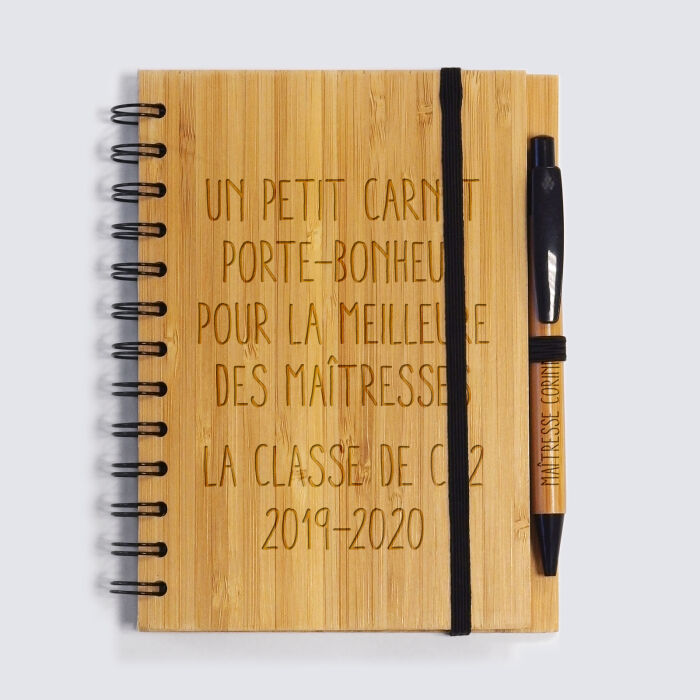 UN PETIT CARNET
PORTE-BONHEUR
POUR LA MEILLEURE
DES MAÎTRESSES
LA CLASSE DE
2019-2020
MAÎTRESSE